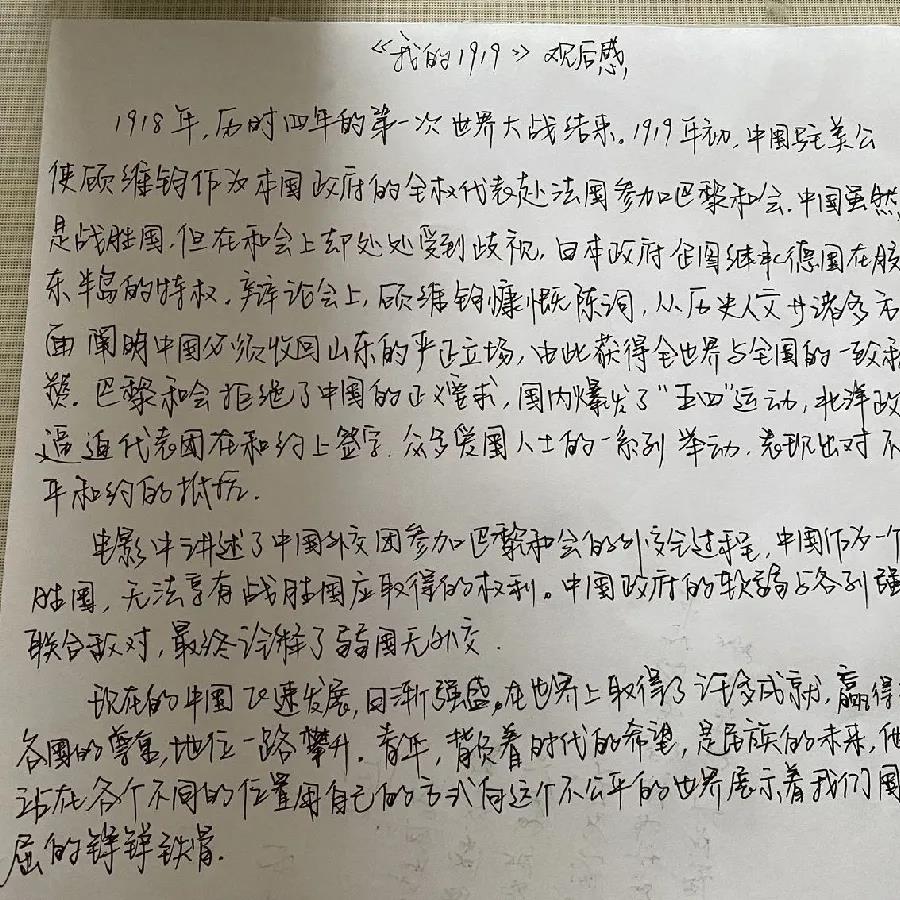 《我的1919》观后感
1918年,历时四年的第一次世界大战结束。1919年初,中国驻美公
使顾维钧作为本国政府的全权代表赴法国参加巴黎和会.中国虽然
是战胜国.但在和会上却处处受到歧视,日本政府企图继承德国在胶
东半岛的特权.辩论会上,顾维钧慷慨陈词,从历史人文等诸多方
面阐明中国必须收回山东的严正立场,由此获得全世界与全国的一致称
赞.巴黎和会拒绝了中国的正义要求,国内爆发了"五四"运动,北洋政
逼迫代表团在和约上签字.众多爱国人士的一系列举动,表现出对不
平和约的抵抗.
电影中讲述了中国外交团参加巴黎和会的外交全过程,中国作为一个
胜国,无法享有战胜国应取得的权利。中国政府的软弱与各列强
联合敌对,最终诠释了弱国无外交.
现在的中国飞速发展,日渐强盛。在世界上取得了许多成就,赢得
各国的尊重,地位一路攀升.青年,背负着时代的希望,是民族的未来,他
站在各个不同的位置用自己的方式向这个不公平的世界展示着我们国
屈的铮铮铁骨.